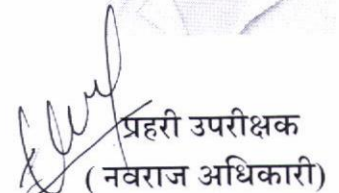 प्रहरी उपरीक्षक
( नवराज अधिकारी)